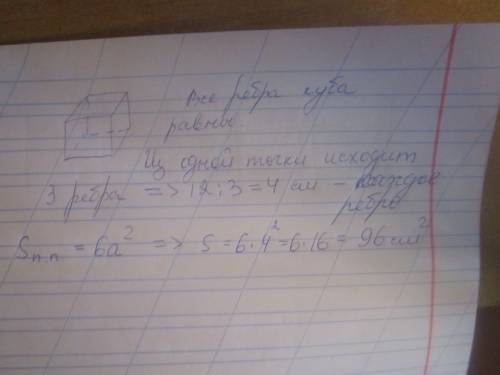 Все ребра куба
равны.
Из одной точки исходит
3 ребра => 12:3=4 см - каждое
ребро
Sп.п = 6a² => S = 6·4²=6·16= 96 см²